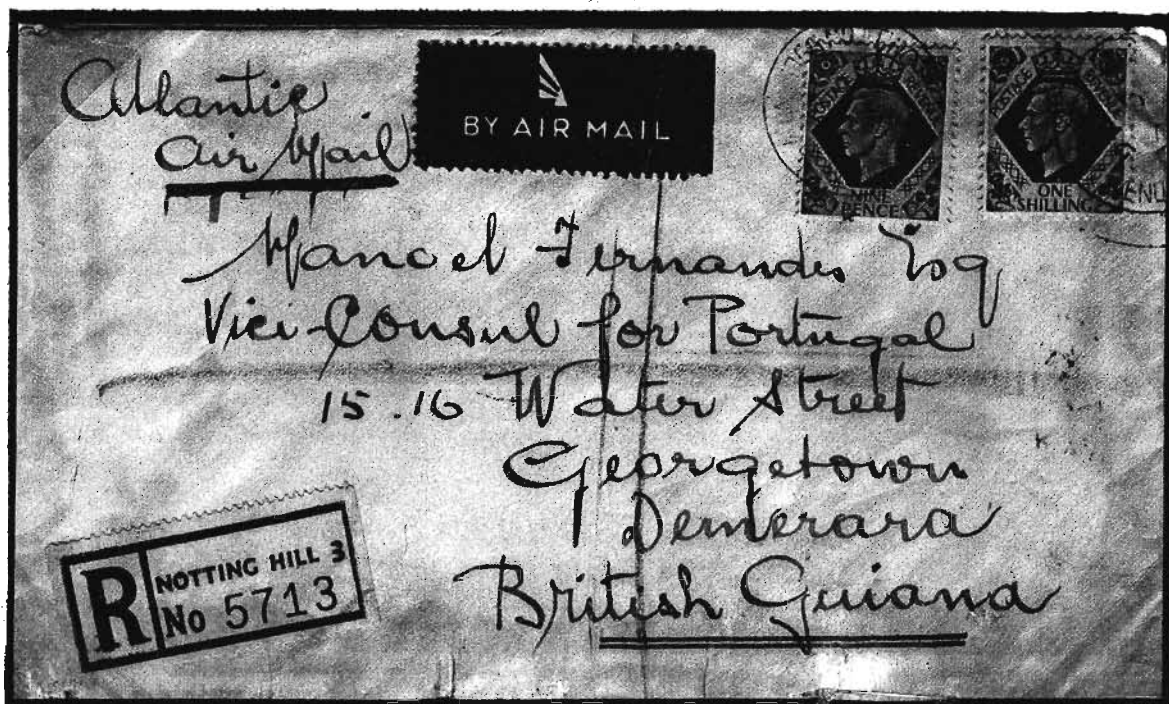 Atlantic
Air Mail
BY AIR MAIL
POSTAGE REVENUE
NINE
PENCE
POSTAGE REVENUE
ONE
SHILLING
Manoel Fernandes Esq
Vici-Consul for Portugal
15.16 Water Street
Georgetown
Demerara
British Guiana
R
NOTTING HILL 3
No 5713